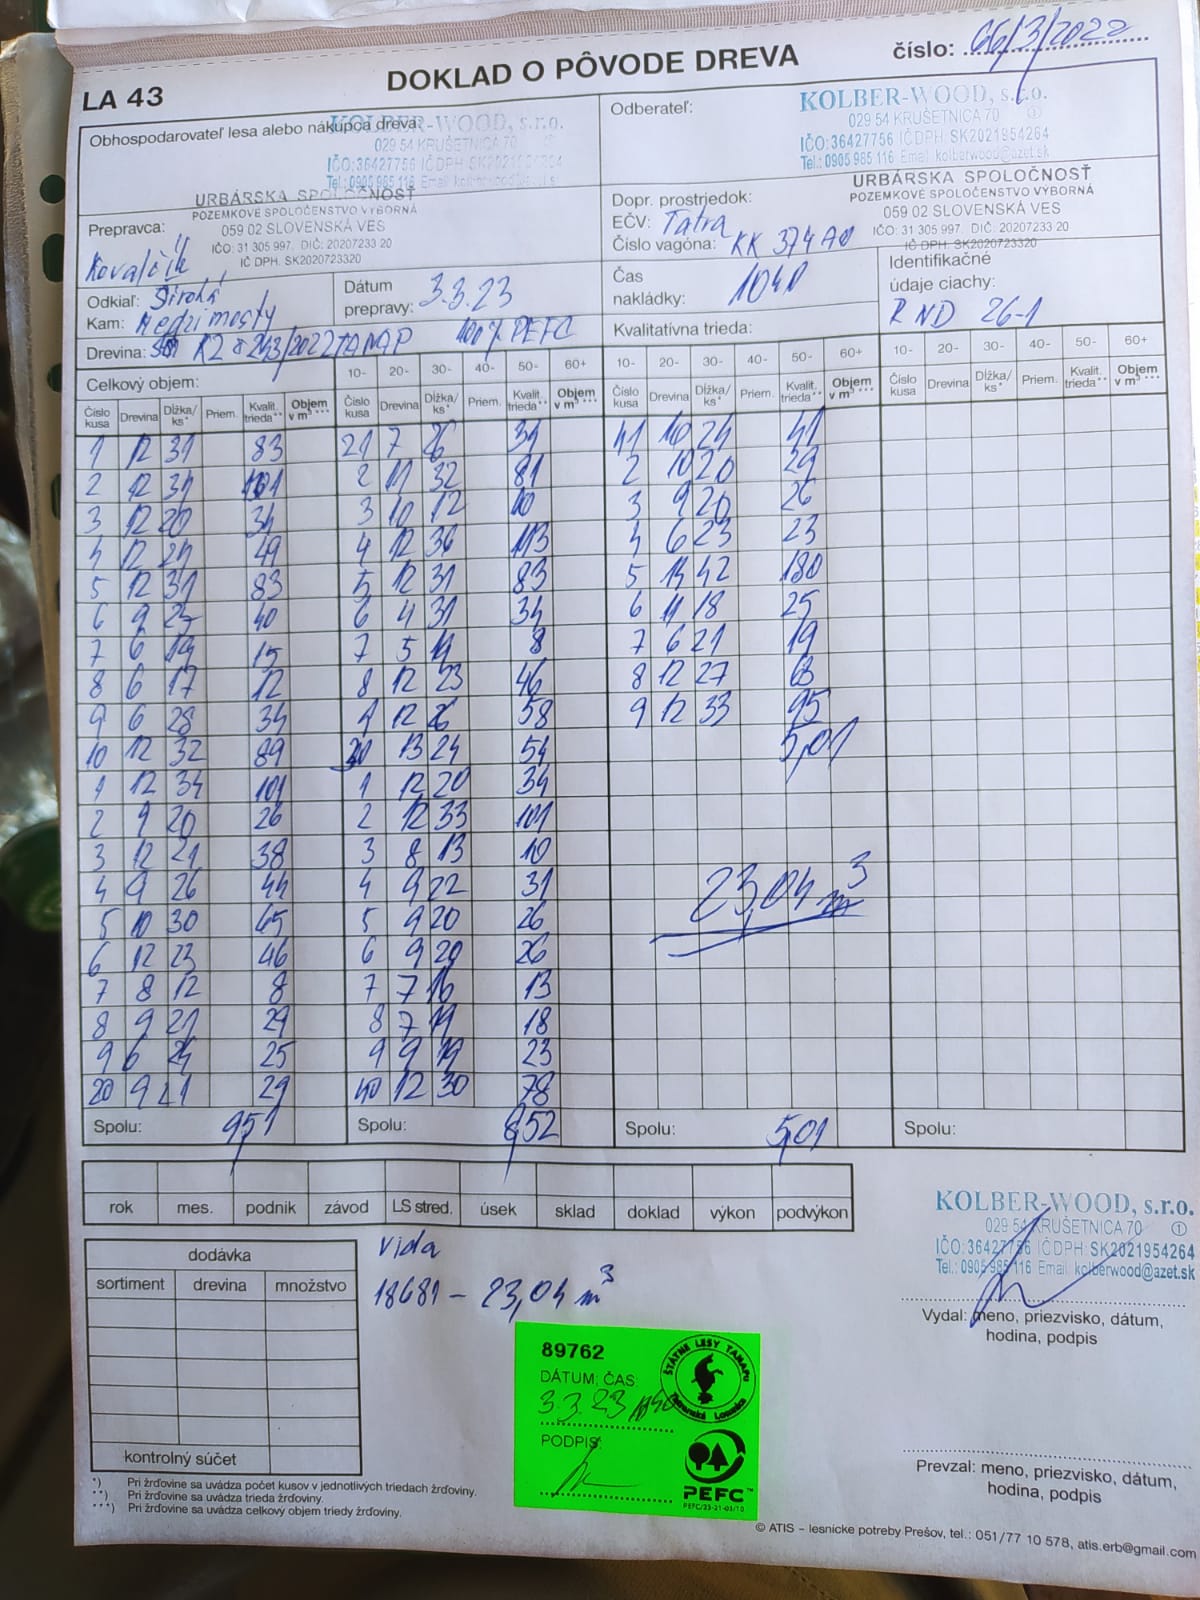 LA 43
DOKLAD O PÔVODE DREVA
číslo: 66/3/2022
Obhospodarovateľ lesa alebo nákupca dreva:
KOLBER-WOOD, s.r.o.
029 54 KRUŠETNICA 70
IČO:36427756 IČDPH:SK2021954264
Tel.:0905 985 116 Email
URBÁRSKA SPOLOČNOSŤ
POZEMKOVÉ SPOLOČENSTVO VÝBORNÁ
059 02 SLOVENSKÁ VES
IČO: 31 305 997, DIČ: 20207233 20
IČ DPH: SK2020723320
Odberateľ:
KOLBER-WOOD, s.r.o.
029 54 KRUŠETNICA 70 ①
IČO:36427756 IČDPH: SK2021954264
Tel.:0905 985 116 Email: kolberwood@azet.sk
Prepravca:
Kovalčík
Dopr. prostriedok:
EČV: Tatra
Číslo vagóna: KK 374AO
URBÁRSKA SPOLOČNOSŤ
POZEMKOVÉ SPOLOČENSTVO VÝBORNÁ
059 02 SLOVENSKÁ VES
IČO: 31 305 997, DIČ: 20207233 20
IČ DPH: SK2020723320
Odkiaľ: Široká
Kam: Medzimosty
Dátum prepravy: 3.3.23
Čas nakládky: 1040
Identifikačné údaje ciachy:
RND 26-1
Drevina: SM K2 243/2022 TANAP 100% PEFC
Kvalitatívna trieda:
Celkový objem:
10- 20- 30- 40- 50- 60+
10- 20- 30- 40- 50- 60+
10- 20- 30- 40- 50- 60+
Číslo kusa Drevina Dĺžka/ks* Priem. Kvalit. trieda** Objem v m³ ***
Číslo kusa Drevina Dĺžka/ks* Priem. Kvalit. trieda** Objem v m³ ***
Číslo kusa Drevina Dĺžka/ks* Priem. Kvalit. trieda** Objem v m³ ***
Číslo kusa Drevina Dĺžka/ks* Priem. Kvalit. trieda** Objem v m³ ***
1 12 31 83 21 7 26 34 41 10 24 41
2 12 34 101 2 11 32 81 2 10 20 29
3 12 20 34 3 10 12 10 3 9 20 26
4 12 24 49 4 12 36 113 4 6 23 23
5 12 31 83 5 12 31 83 5 14 42 180
6 9 25 40 6 4 31 34 6 11 18 25
7 6 19 15 7 5 14 8 7 6 21 19
8 6 17 12 8 12 23 46 8 12 27 63
9 6 28 34 9 12 26 58 9 12 33 95
10 12 32 89 30 13 24 54 5,01
1 12 34 101 1 12 20 34
2 9 20 26 2 12 33 101
3 12 21 38 3 8 13 10
4 9 26 44 4 9 22 31
5 10 30 65 5 9 20 26
6 12 23 46 6 9 20 26
7 8 12 8 7 7 16 13
8 9 21 29 8 7 19 18
9 6 24 25 9 9 19 23
20 9 21 29 40 12 30 78
23,04 m³
Spolu: 9,51 Spolu: 8,52 Spolu: 5,01 Spolu:
rok mes. podnik závod LS stred. úsek sklad doklad výkon podvýkon
dodávka
sortiment drevina množstvo
kontrolný súčet
Vida
18681 - 23,04 m³
KOLBER-WOOD, s.r.o.
029 54 KRUŠETNICA 70 ①
IČO:36427756 IČDPH:SK2021954264
Tel.:0905 985 116 Email: kolberwood@azet.sk
Vydal: meno, priezvisko, dátum,
hodina, podpis
89762
DÁTUM; ČAS:
3.3.23 1040
PODPIS:
ŠTÁTNE LESY TANAPu
Tatranská Lomnica
PEFC™
PEFC/23-21-03/10
Prevzal: meno, priezvisko, dátum,
hodina, podpis
*) Pri žrďovine sa uvádza počet kusov v jednotlivých triedach žrďoviny.
**) Pri žrďovine sa uvádza trieda žrďoviny.
***) Pri žrďovine sa uvádza celkový objem triedy žrďoviny.
© ATIS – lesnícke potreby Prešov, tel.: 051/77 10 578, atis.erb@gmail.com